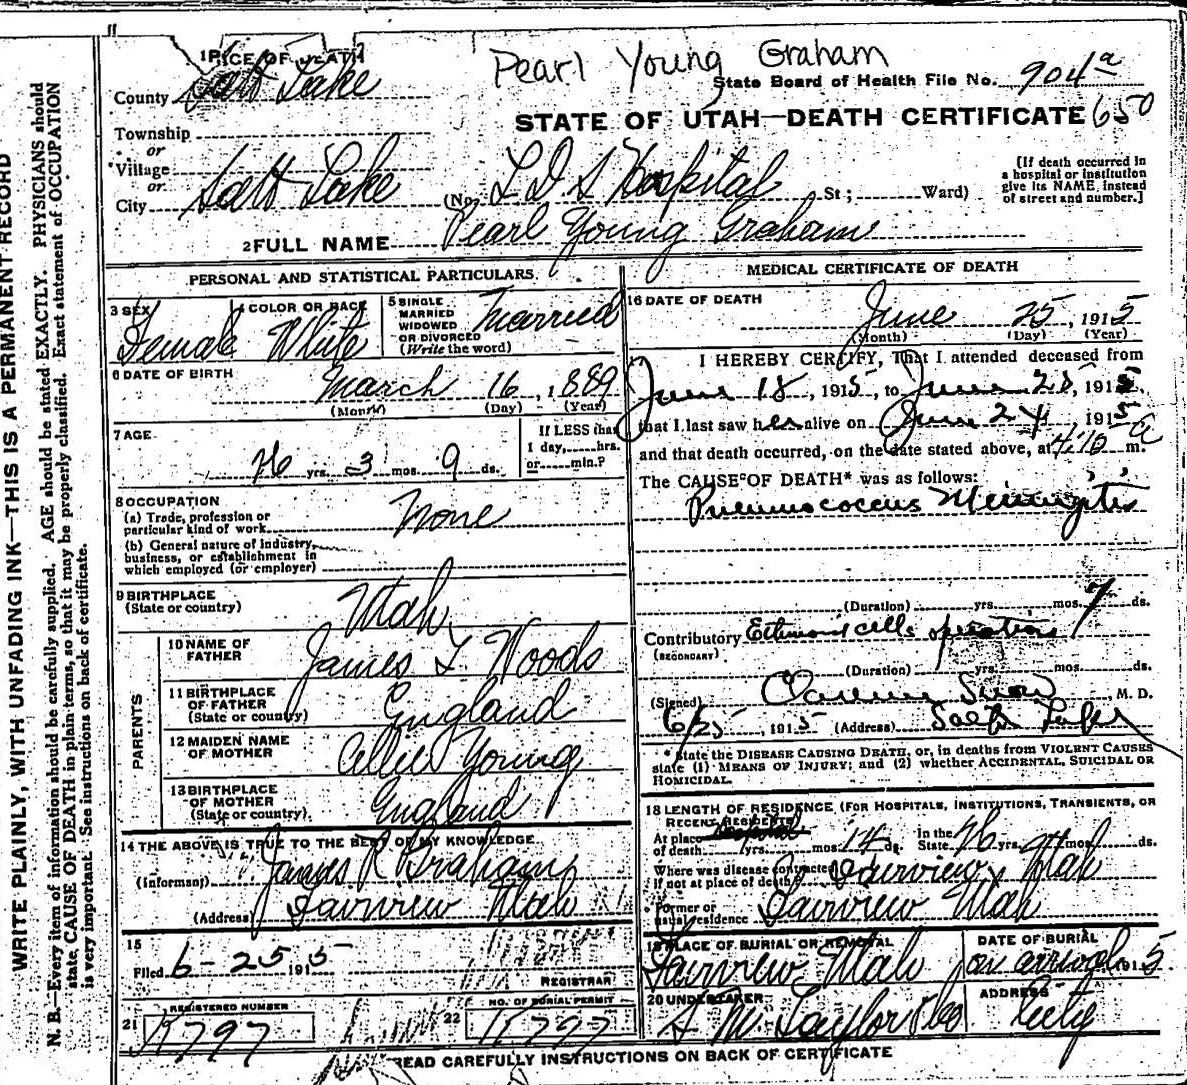 WRITE PLAINLY, WITH UNFADING INK—THIS IS A PERMANENT RECORD
N. B.—Every item of information should be carefully supplied. AGE should be stated EXACTLY. PHYSICIANS should
state CAUSE OF DEATH in plain terms, so that it may be properly classified. Exact statement of OCCUPATION
is very important. See instructions on back of certificate.
Pearl Young Graham
1 PLACE OF DEATH
State Board of Health File No. 904 a
County Salt Lake
STATE OF UTAH—DEATH CERTIFICATE 650
Township
or
Village
or
City Salt Lake (No. L D S Hospital St; Ward)
[If death occurred in
a hospital or institution
give its NAME instead
of street and number.]
2 FULL NAME Pearl Young Graham
PERSONAL AND STATISTICAL PARTICULARS
3 SEX Female
4 COLOR OR RACE White
5 SINGLE
MARRIED
WIDOWED
OR DIVORCED
(Write the word) Married
6 DATE OF BIRTH March 16, 1889
(Month) (Day) (Year)
7 AGE 26 yrs. 3 mos. 9 ds.
If LESS than
1 day, hrs.
or min.?
8 OCCUPATION
(a) Trade, profession or
particular kind of work None
(b) General nature of industry,
business, or establishment in
which employed (or employer)
9 BIRTHPLACE
(State or country) Utah
PARENTS
10 NAME OF
FATHER James T Woods
11 BIRTHPLACE
OF FATHER
(State or country) England
12 MAIDEN NAME
OF MOTHER Allie Young
13 BIRTHPLACE
OF MOTHER
(State or country) England
14 THE ABOVE IS TRUE TO THE BEST OF MY KNOWLEDGE
(Informant) James R Graham
(Address) Fairview Utah
15
Filed 6-25 1915
REGISTRAR
REGISTERED NUMBER
21 K797
NO. OF BURIAL PERMIT
22 K797
MEDICAL CERTIFICATE OF DEATH
16 DATE OF DEATH
June 25, 1915
(Month) (Day) (Year)
17 I HEREBY CERTIFY, That I attended deceased from
June 18, 1915, to June 25, 1915,
that I last saw her alive on June 24 1915
and that death occurred, on the date stated above, at 4:10 a m.
The CAUSE OF DEATH* was as follows:
Pneumococcus Meningitis
(Duration) yrs. mos. 7 ds.
Contributory Ethmoid cells operation
(SECONDARY)
(Duration) yrs. mos. ds.
(Signed) Clarence Snow, M. D.
6/25, 1915 (Address) Salt Lake
* State the DISEASE CAUSING DEATH, or, in deaths from VIOLENT CAUSES
state (1) MEANS OF INJURY; and (2) whether ACCIDENTAL, SUICIDAL OR
HOMICIDAL.
18 LENGTH OF RESIDENCE (FOR HOSPITALS, INSTITUTIONS, TRANSIENTS, OR
RECENT RESIDENTS)
At place
of death yrs. mos. 14 ds. In the
State 26 yrs. mos. ds.
Where was disease contracted
if not at place of death? Fairview Utah
Former or
usual residence Fairview Utah
19 PLACE OF BURIAL OR REMOVAL
Fairview Utah
DATE OF BURIAL
on arrival 1915
20 UNDERTAKER
S M Taylor & Co
ADDRESS
City
READ CAREFULLY INSTRUCTIONS ON BACK OF CERTIFICATE